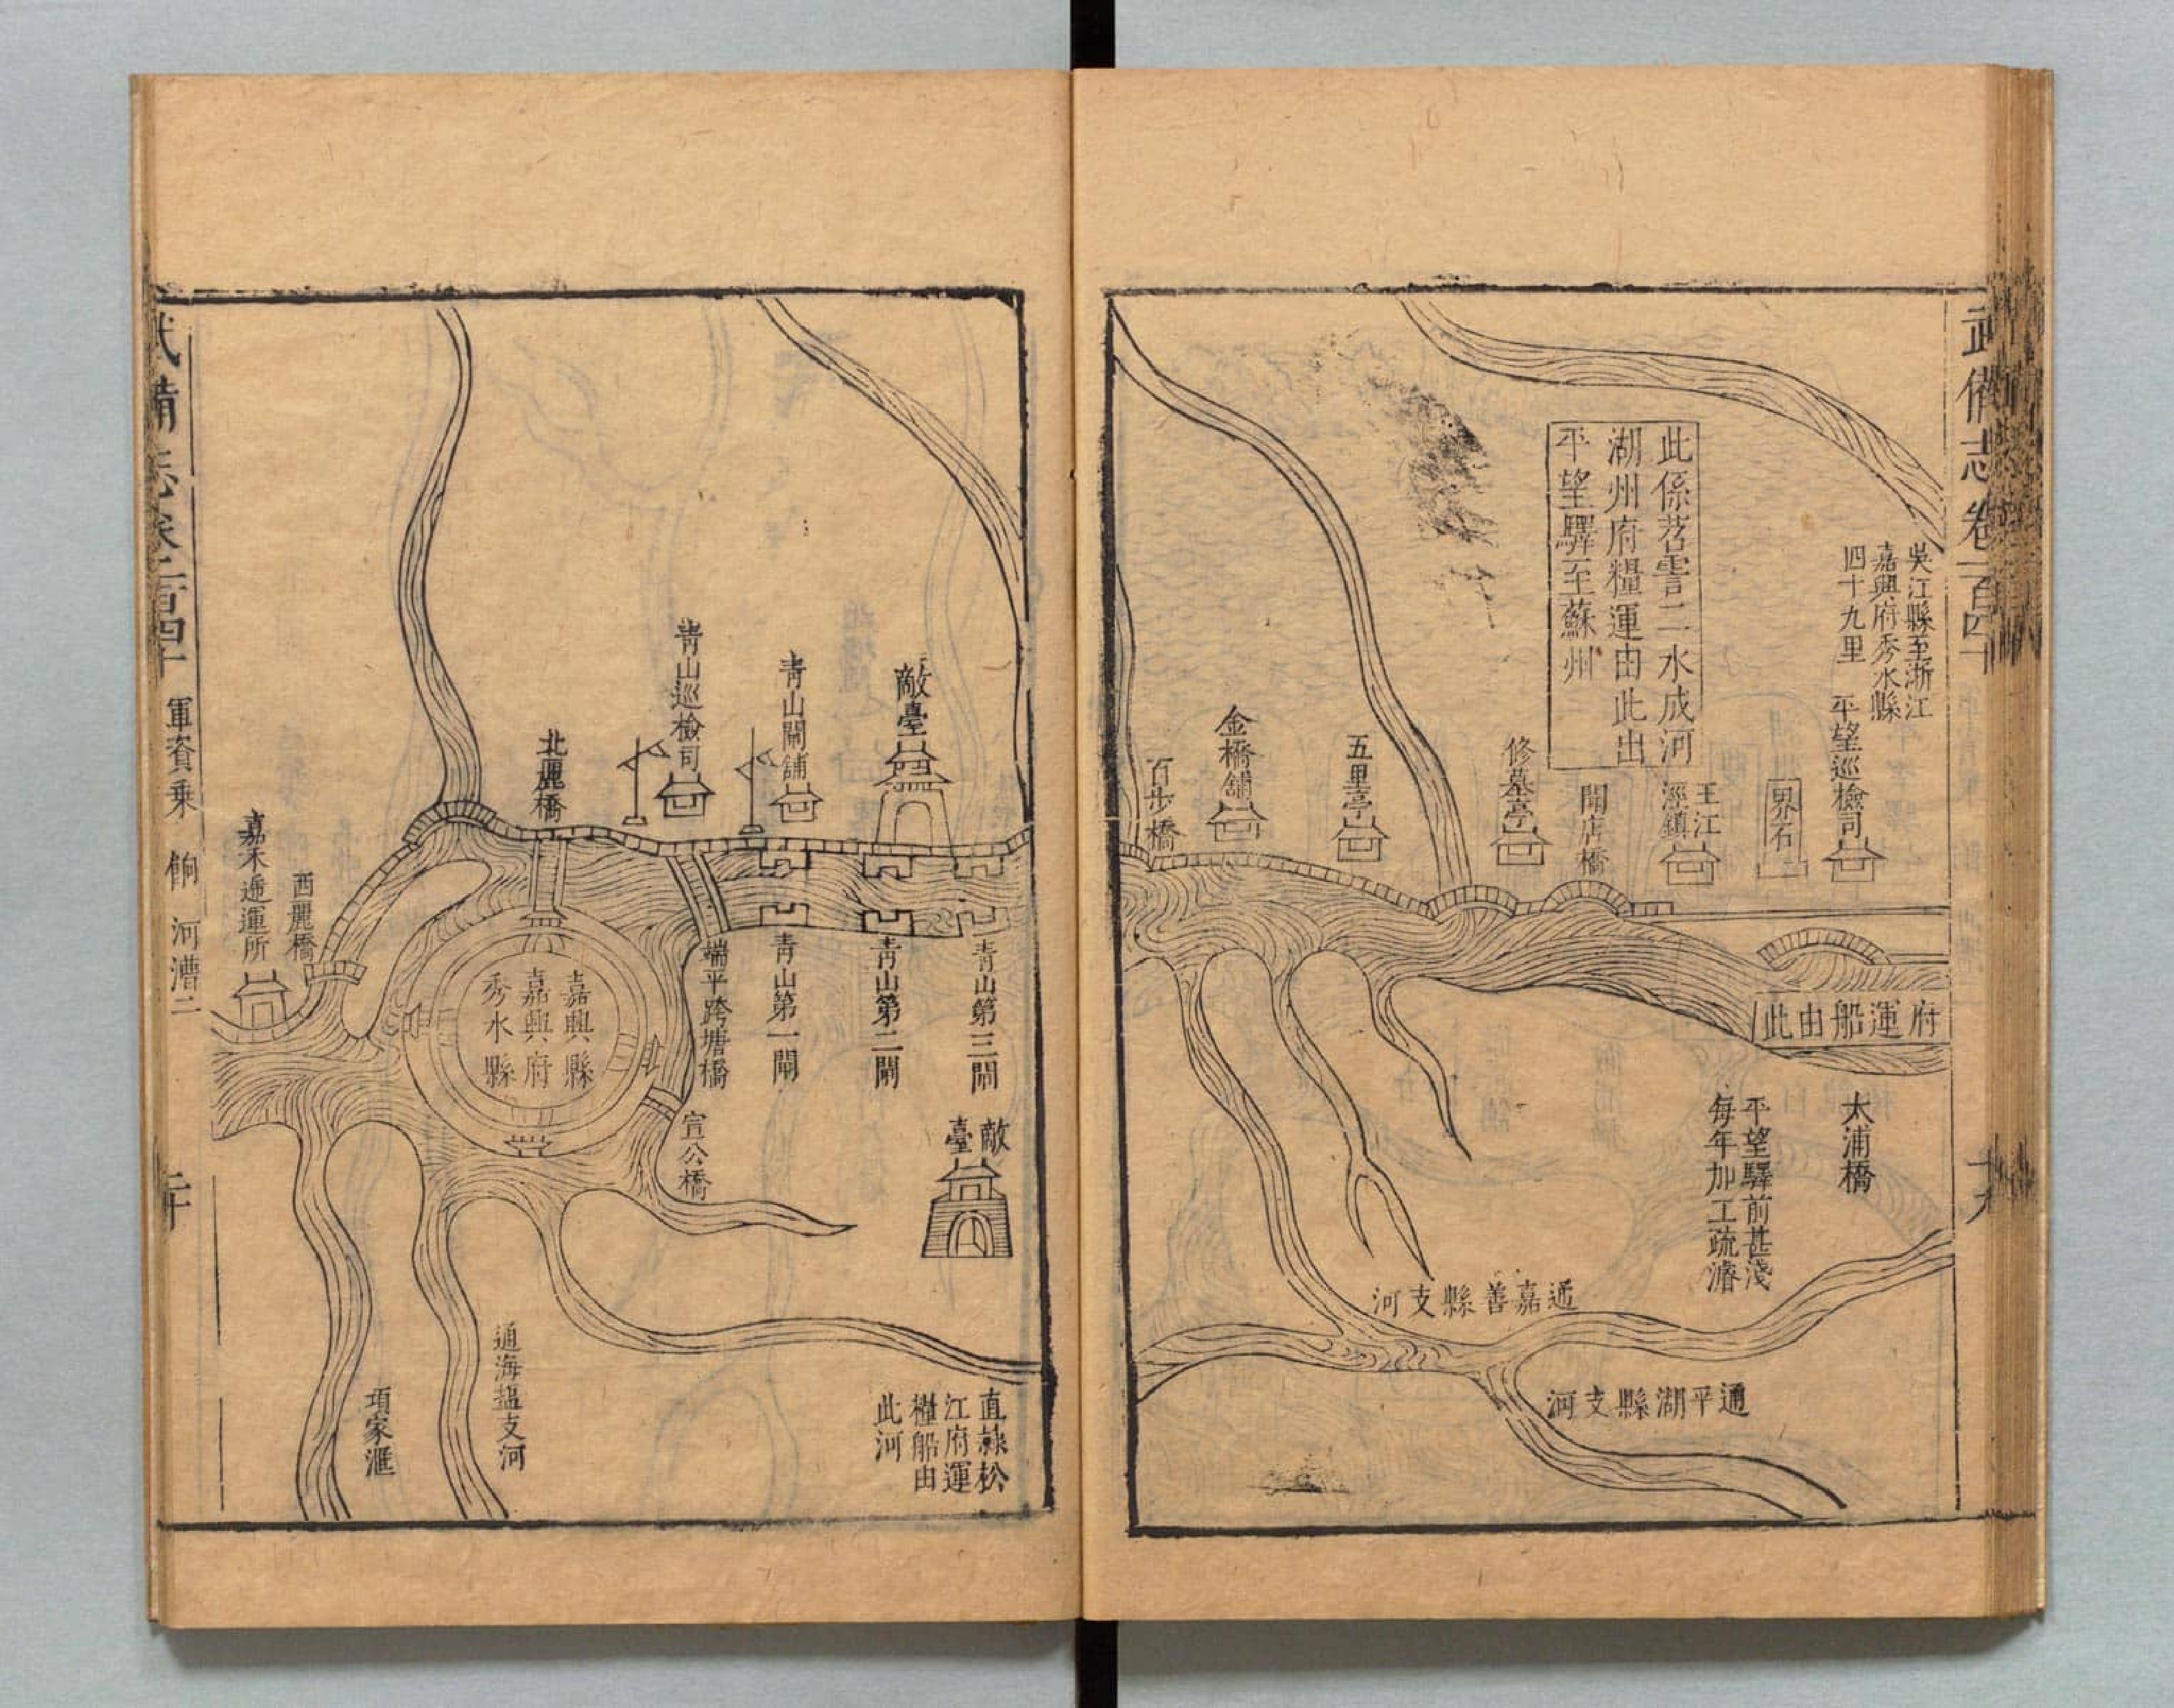 武備志卷一百四十
吳江縣至浙江
嘉興府秀水縣
四十九里
平望巡檢司
界石
王江
涇鎮
此係苕霅二水成河
湖州府糧運由此出
平望驛至蘇州
聞店橋
修墓亭
五里亭
金橋舖
百步橋
府運船由此
太浦橋
平望驛前甚淺
每年加工疏濬
通嘉善縣支河
通平湖縣支河
敵臺
青山閘舖
青山巡檢司
北麗橋
青山第三閘
青山第二閘
青山第一閘
端平跨塘橋
宣公橋
嘉興縣
嘉興府
秀水縣
西麗橋
嘉禾遞運所
敵
臺
直隸松
江府運
糧船由
此河
通海塩支河
項家滙
武備志卷一百四十 軍資乗 餉 河漕二